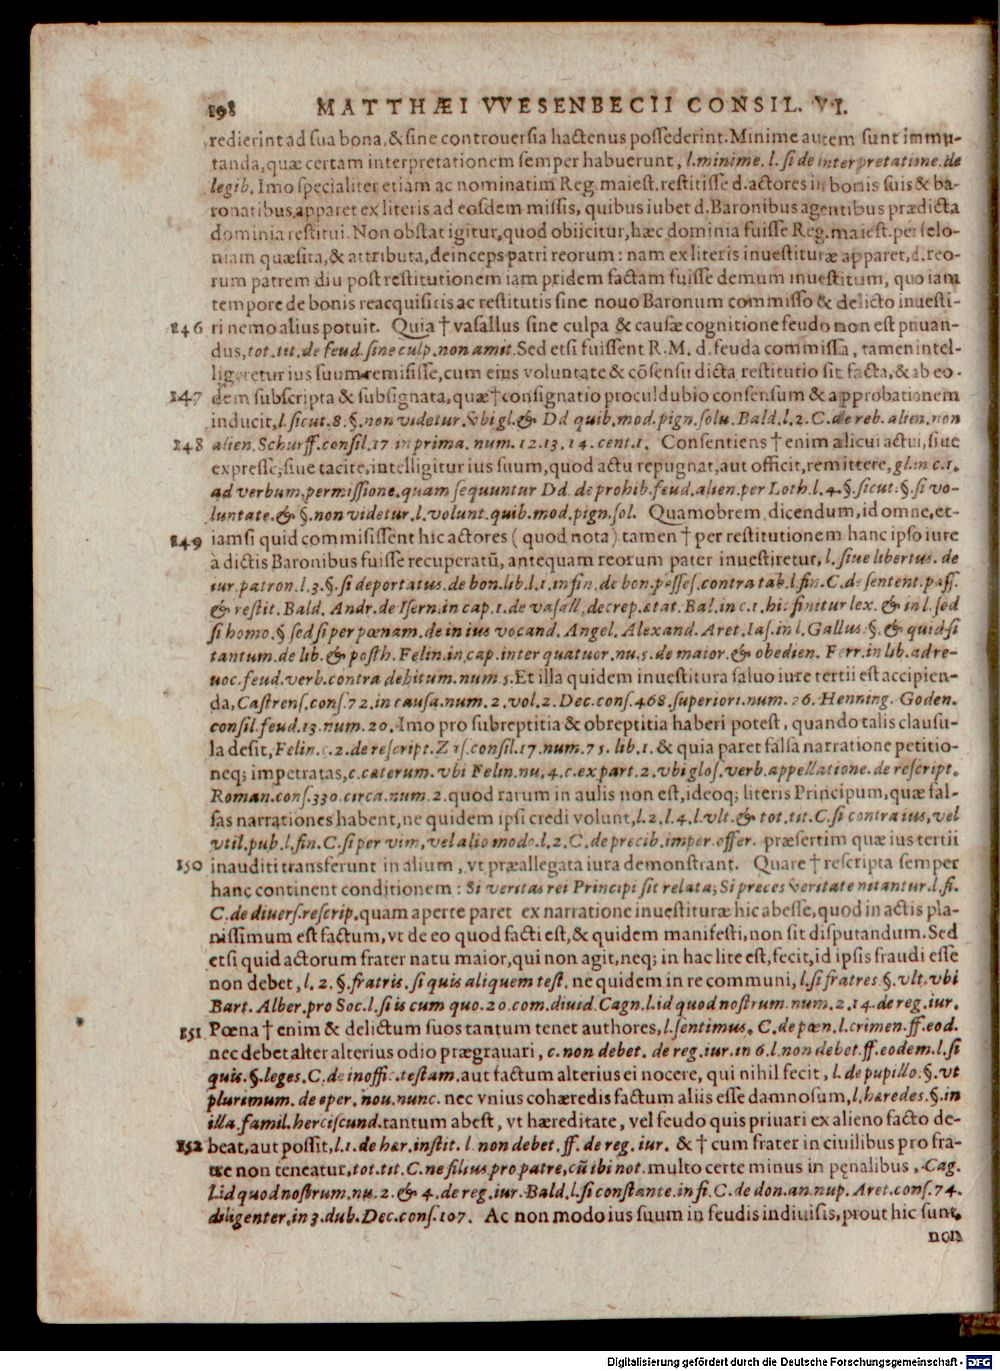 198 MATTHÆI VVESENBECII CONSIL. VI.
redierint ad sua bona, & sine controuersia hactenus possederint. Minime autem sunt immu-
tanda, quæ certam interpretationem semper habuerunt, l. minime. l. si de interpretatione. de
legib. Imo specialiter etiam ac nominatim Reg. maiest. restitisse d. actores in bonis suis & ba-
ronatibus, apparet ex literis ad eosdem missis, quibus iubet d. Baronibus agentibus prædicta
dominia restitui. Non obstat igitur, quod obiicitur, hæc dominia fuisse Reg. maiest. per felo-
niam quæsita, & attributa, deinceps patri reorum: nam ex literis inuestituræ apparet, d. reo-
rum patrem diu post restitutionem iam pridem factam fuisse demum inuestitum, quo iam
tempore de bonis reacquisitis ac restitutis sine nouo Baronum commisso & delicto inuesti-
246 ri nemo alius potuit. Quia † vasallus sine culpa & causæ cognitione feudo non est priuan-
dus, tot. tit. de feud. sine culp. non amit. Sed etsi fuissent R. M. d. feuda commissa, tamen intel-
ligeretur ius suum remisisse, cum eius voluntate & cōsensu dicta restitutio sit facta, & ab eo-
247 dem subscripta & subsignata, quæ † consignatio proculdubio consensum & approbationem
inducit, l. sicut. 8. §. non videtur. vbi gl. & Dd quib. mod. pign. solu. Bald. l. 2. C. de reb. alien. non
248 alien. Schurff. consil. 17 in prima. num. 12. 13. 14. cent. 1. Consentiens † enim alicui actui, siue
expresse, siue tacite, intelligitur ius suum, quod actu repugnat, aut officit, remittere, gl. in c. 1.
ad verbum, permissione. quam sequuntur Dd. de prohib. feud. alien. per Loth. l. 4. §. sicut. §. si vo-
luntate. & §. non videtur. l. volunt. quib. mod. pign. sol. Quamobrem dicendum, id omne, et-
249 iamsi quid commisissent hic actores (quod nota) tamen † per restitutionem hanc ipso iure
à dictis Baronibus fuisse recuperatū, antequam reorum pater inuestiretur, l. siue libertus. de
iur. patron. l. 3. §. si deportatus. de bon. lib. l. 1. in fin. de bon. posses. contra tab. l. fin. C. de sentent. pass.
& restit. Bald. Andr. de Isern. in cap. 1. de vasall. decrep. ætat. Bal. in c. 1. hic finitur lex. & in l. sed
si homo. § sed si per pœnam. de in ius vocand. Angel. Alexand. Aret. Ias. in l. Gallus. §. & quid si
tantum. de lib. & posth. Felin. in cap. inter quatuor. nu. 5. de maior. & obedien. Ferr. in lib. ad re-
uoc. feud. verb. contra debitum. num. 5. Et illa quidem inuestitura saluo iure tertii est accipien-
da, Castrens. cons. 72. in causa. num. 2. vol. 2. Dec. cons. 468. superiori. num. 26. Henning. Goden.
consil. feud. 13. num. 20. Imo pro subreptitia & obreptitia haberi potest, quando talis clausu-
la desit, Felin. c. 2. de rescript. Zas. consil. 17. num. 75. lib. 1. & quia paret falsa narratione petitio-
neq; impetratas, c. cæterum. vbi Felin. nu. 4. c. ex part. 2. vbi glos. verb. appellatione. de rescript.
Roman. cons. 330. circa. num. 2. quod rarum in aulis non est, ideoq; literis Principum, quæ fal-
sas narrationes habent, ne quidem ipsi credi volunt, l. 2. l. 4. l. vlt. & tot. tit. C. si contra ius, vel
vtil. pub. l. fin. C. si per vim, vel alio modo. l. 2. C. de precib. imper. offer. præsertim quæ ius tertii
250 inauditi transferunt in alium, vt præallegata iura demonstrant. Quare † rescripta semper
hanc continent conditionem: Si veritas rei Principi sit relata; Si preces veritate nitantur. l. fi.
C. de diuers. rescrip. quam aperte paret ex narratione inuestituræ hic abesse, quod in actis pla-
nissimum est factum, vt de eo quod facti est, & quidem manifesti, non sit disputandum. Sed
etsi quid actorum frater natu maior, qui non agit, neq; in hac lite est, fecit, id ipsis fraudi esse
non debet, l. 2. §. fratris. si quis aliquem test. ne quidem in re communi, l. si fratres §. vlt. vbi
Bart. Alber. pro Soc. l. si is cum quo. 20. com. diuid. Cagn. l. id quod nostrum. num. 2. 14. de reg. iur.
251 Pœna † enim & delictum suos tantum tenet authores, l. sentimus. C. de pœn. l. crimen. ff. eod.
nec debet alter alterius odio prægrauari, c. non debet. de reg. iur. in 6. l. non debet. ff. eodem. l. si
quis. §. leges. C. de inoffic. testam. aut factum alterius ei nocere, qui nihil fecit, l. de pupillo. §. vt
plurimum. de oper. nou. nunc. nec vnius cohæredis factum aliis esse damnosum, l. hæredes. §. in
illa. famil. herciscund. tantum abest, vt hæreditate, vel feudo quis priuari ex alieno facto de-
252 beat, aut possit, l. 1. de hær. instit. l. non debet. ff. de reg. iur. & † cum frater in ciuilibus pro fra-
tre non teneatur, tot. tit. C. ne filius pro patre, cū ibi not. multo certe minus in pęnalibus, Cag.
l. id quod nostrum. nu. 2. & 4. de reg. iur. Bald. l. si constante. in fi. C. de don. an. nup. Aret. cons. 74.
diligenter. in 3. dub. Dec. cons. 107. Ac non modo ius suum in feudis indiuisis, prout hic sunt,
non
Digitalisierung gefördert durch die Deutsche Forschungsgemeinschaft - DFG